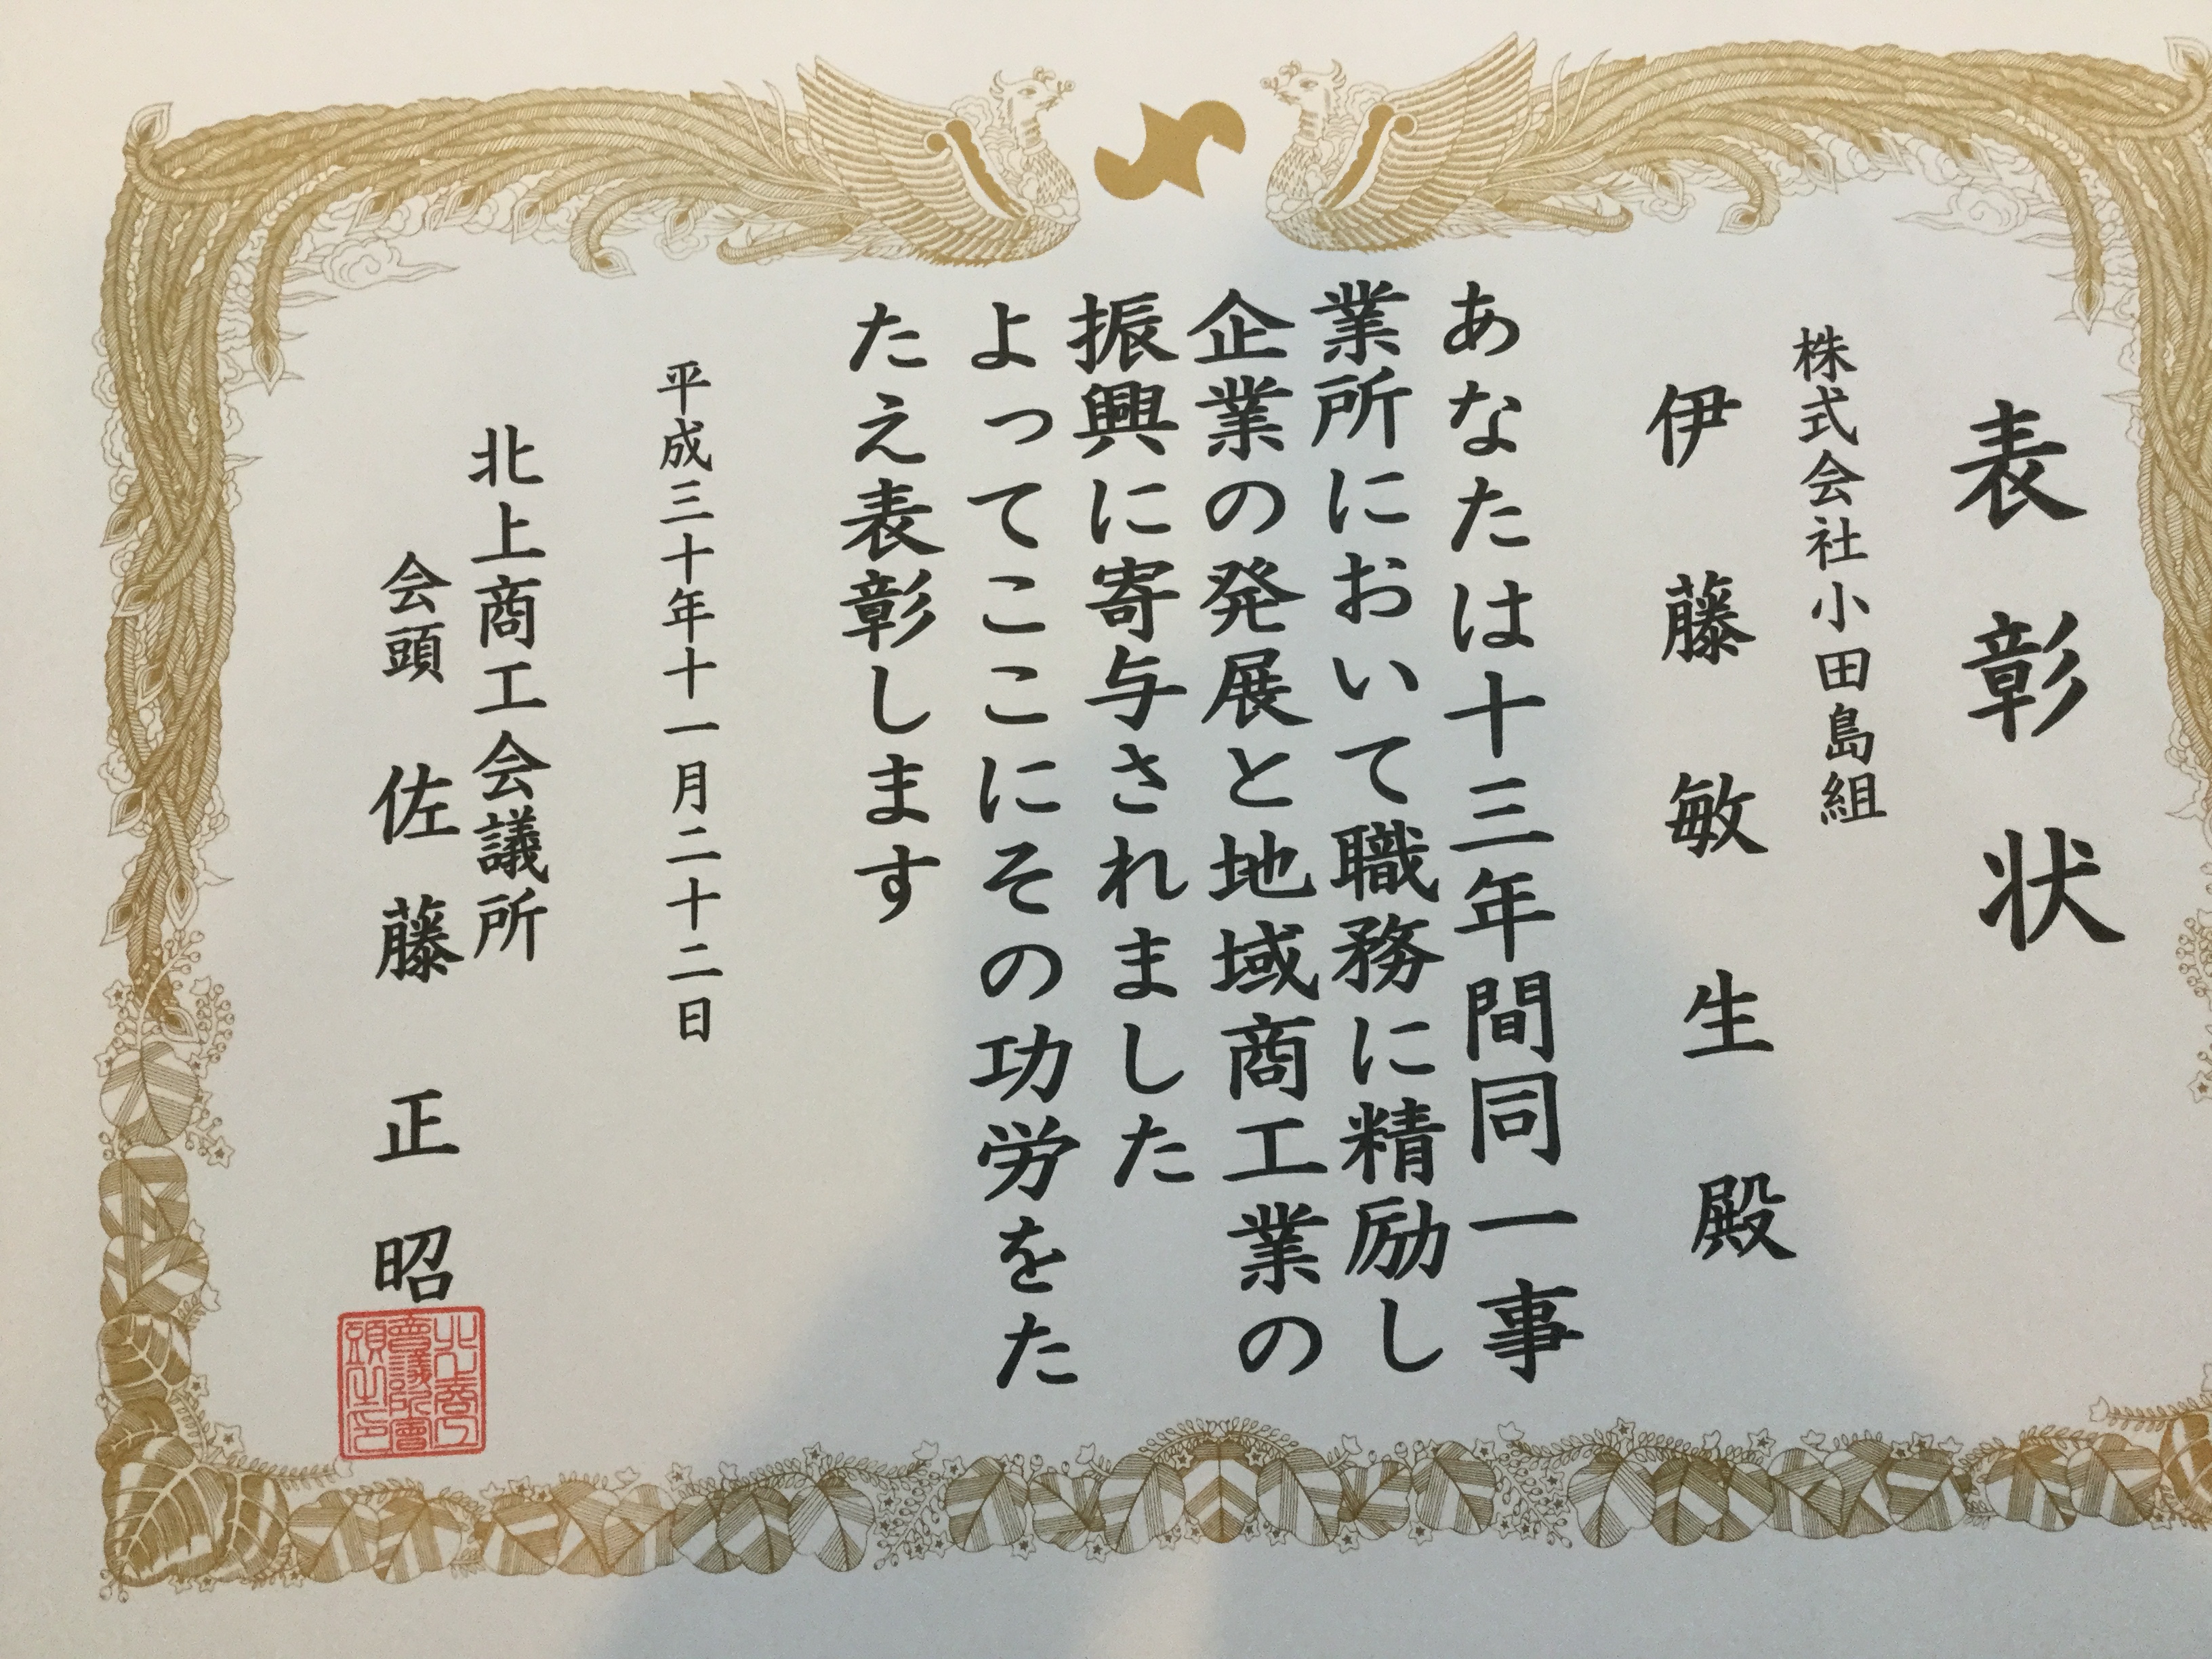 表彰状
株式会社小田島組
伊藤敏生殿
あなたは十三年間同一事
業所において職務に精励し
企業の発展と地域商工業の
振興に寄与されました
よってここにその功労をた
たえ表彰します
平成三十年十一月二十二日
北上商工会議所
会頭 佐藤正昭
北上商工
會議所會
頭之印